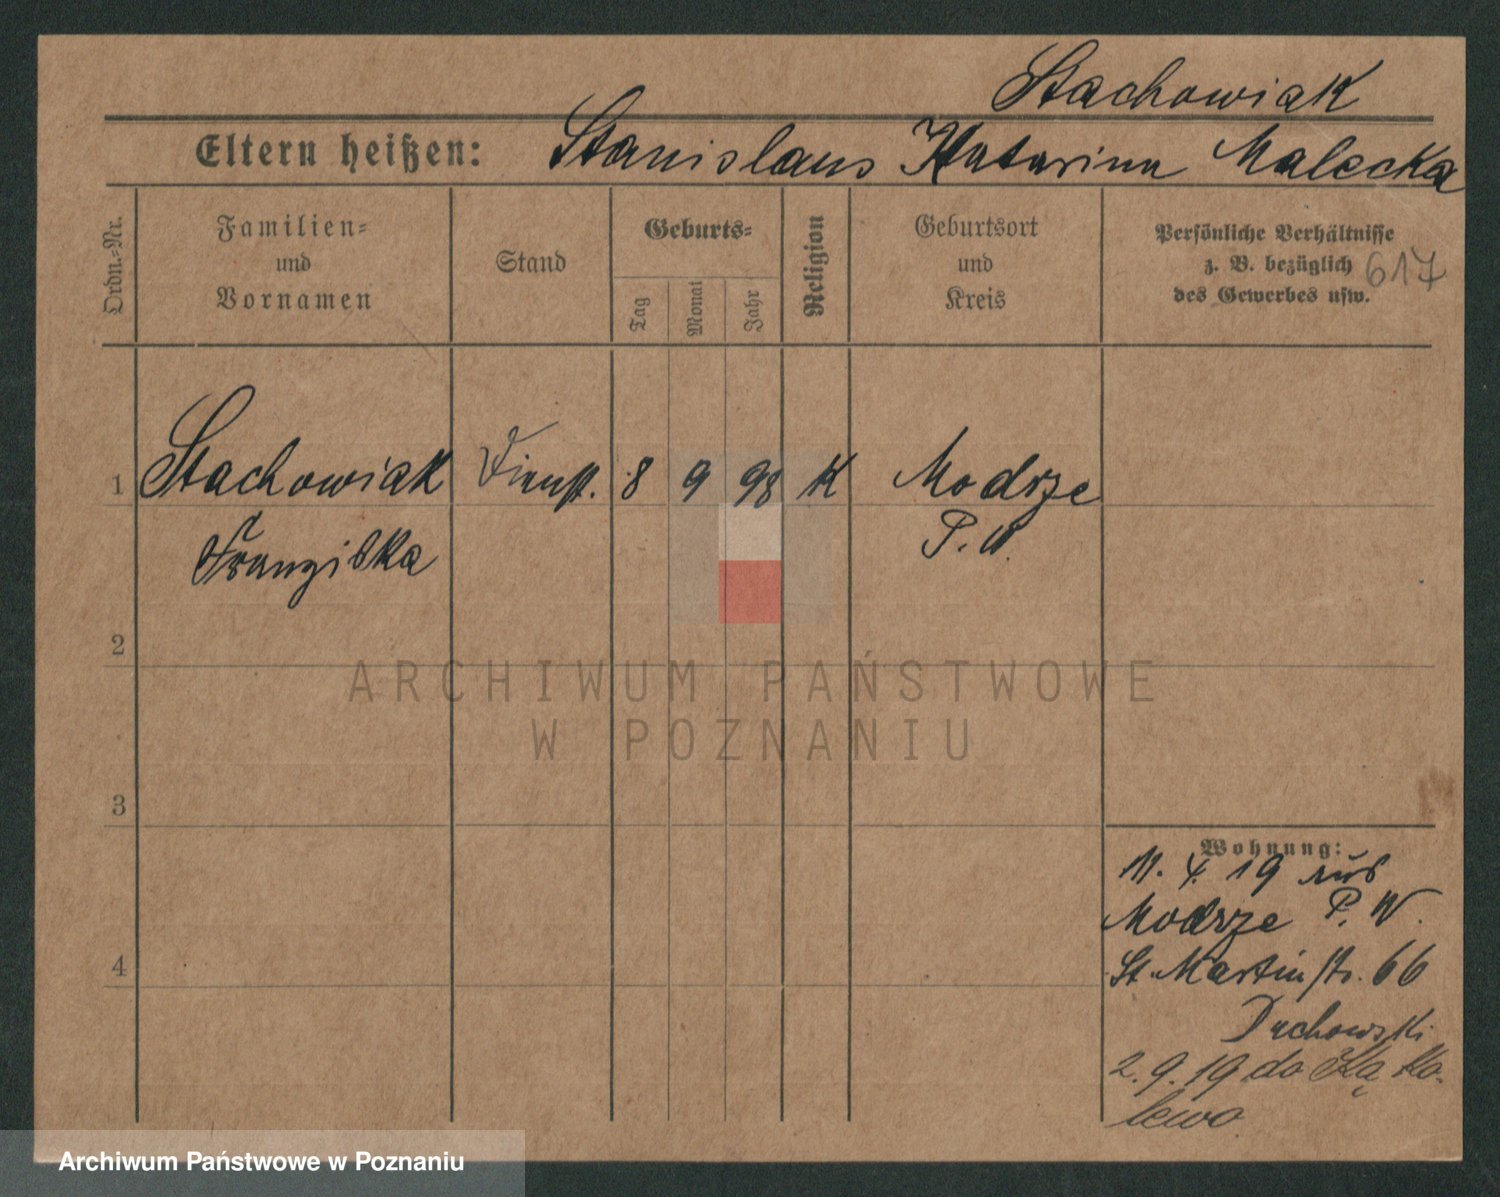 Stachowiak
Eltern heißen: Stanislaus Katarina Malecka
Ordn.-Nr.
Familien- und Vornamen
Stand
Geburts-
Tag
Monat
Jahr
Religion
Geburtsort und Kreis
Persönliche Verhältnisse
z. B. bezüglich
des Gewerbes usw.
617
1 Stachowiak Dienst. 8 9 98 K Modrze
Franziska P. W.
2
3
4
Wohnung:
11. 4. 19 aus
Modrze P. W.
St. Martinstr. 66
Duchowski
2. 9. 19 do Kąko-
lewo
ARCHIWUM PAŃSTWOWE
W POZNANIU
Archiwum Państwowe w Poznaniu